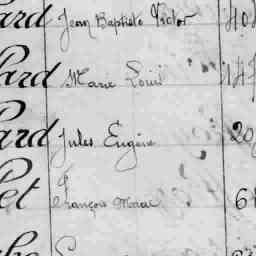 ard Jean Baptiste Victor 40
ard Marie Louis 14
ard Jules Eugène 20
et François Marie 6